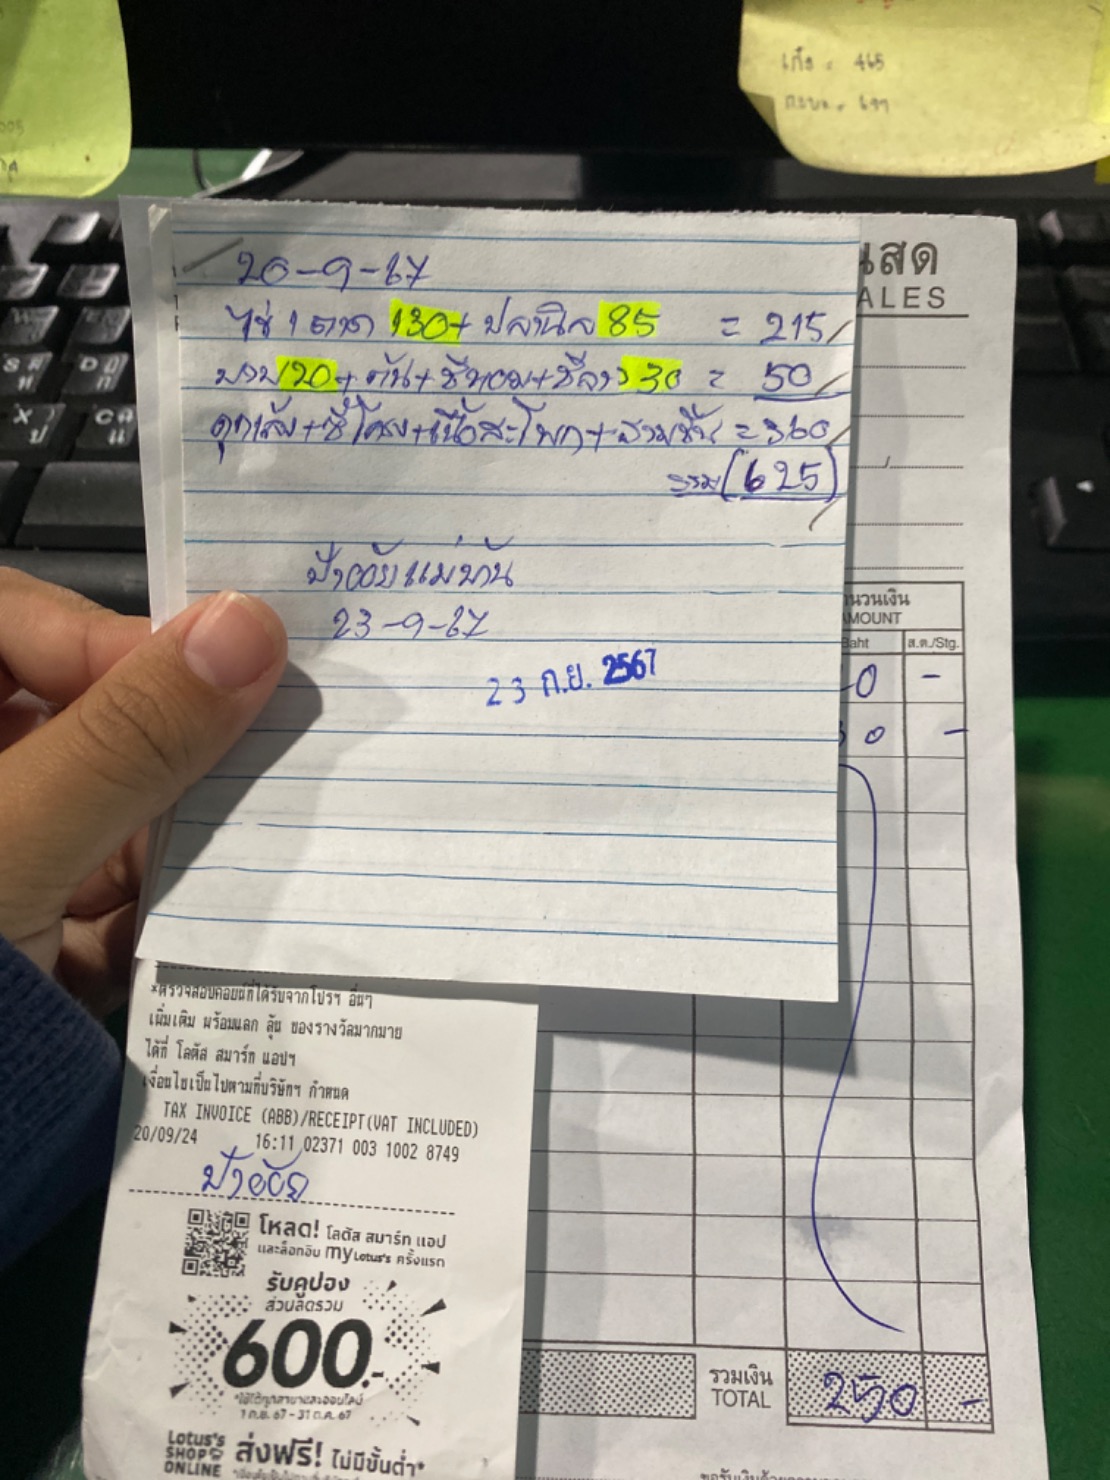 เกือ = 465
005
20-9-67
ไข่ 1 ถาด 130+ ปลานิล 85 = 215
20+ ต้น+ชีหอม+ชีลาว 30 = 50
+ซี่โครง+เนื้อสะโพก+สามชั้น = 360
รวม (625)
ป้าอ้อยแม่บ้าน
23-9-67
23 ก.ย. 2567
นสด
ALES
นวนเงิน
MOUNT
Baht ส.ต./Stg.
0 -
30 -
*ตรวจสอบคอยน์ที่ได้รับจากโปรฯ อื่นๆ
เพิ่มเติม พร้อมแลก ลุ้น ของรางวัลมากมาย
ได้ที่ โลตัส สมาร์ท แอปฯ
เงื่อนไขเป็นไปตามที่บริษัทฯ กำหนด
TAX INVOICE (ABB)/RECEIPT(VAT INCLUDED)
20/09/24 16:11 02371 003 1002 8749
ป้าอ้อย
โหลด! โลตัส สมาร์ท แอป
และล็อกอิน my Lotus's ครั้งแรก
รับคูปอง
ส่วนลดรวม
600.-
*ใช้ได้ทุกสาขาและออนไลน์
1 ก.ย. 67 - 31 ต.ค. 67
Lotus's
SHOP
ONLINE
ส่งฟรี! ไม่มีขั้นต่ำ*
รวมเงิน
TOTAL
250 -